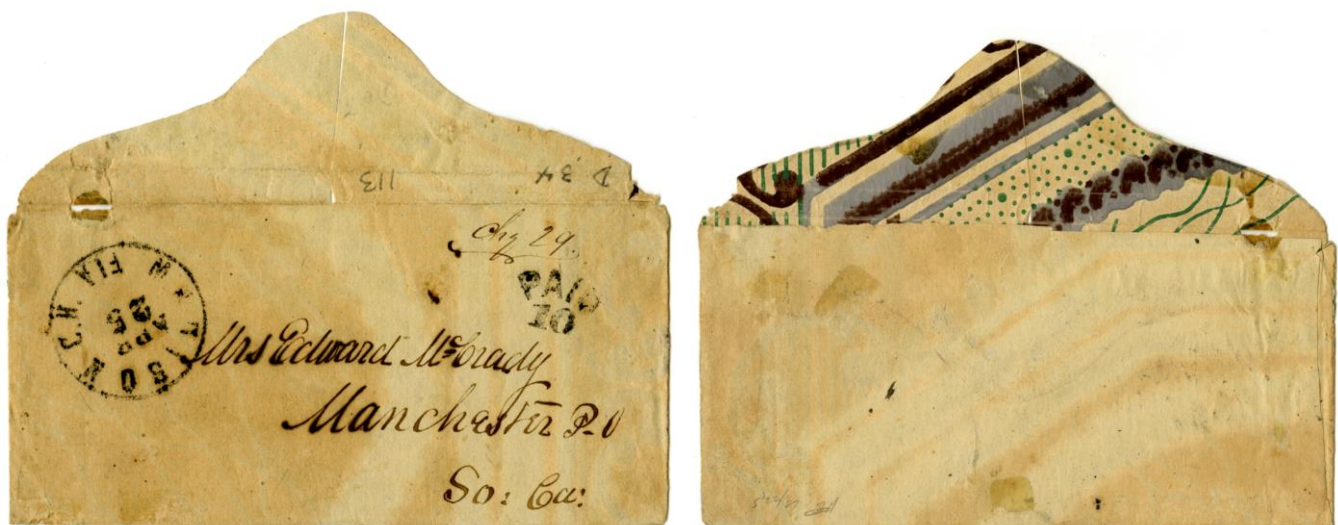 D 34
113
Chg 29.
PAID
10
APR
25
Mrs Edward McCrady
Manchester P.O
So: Ca: